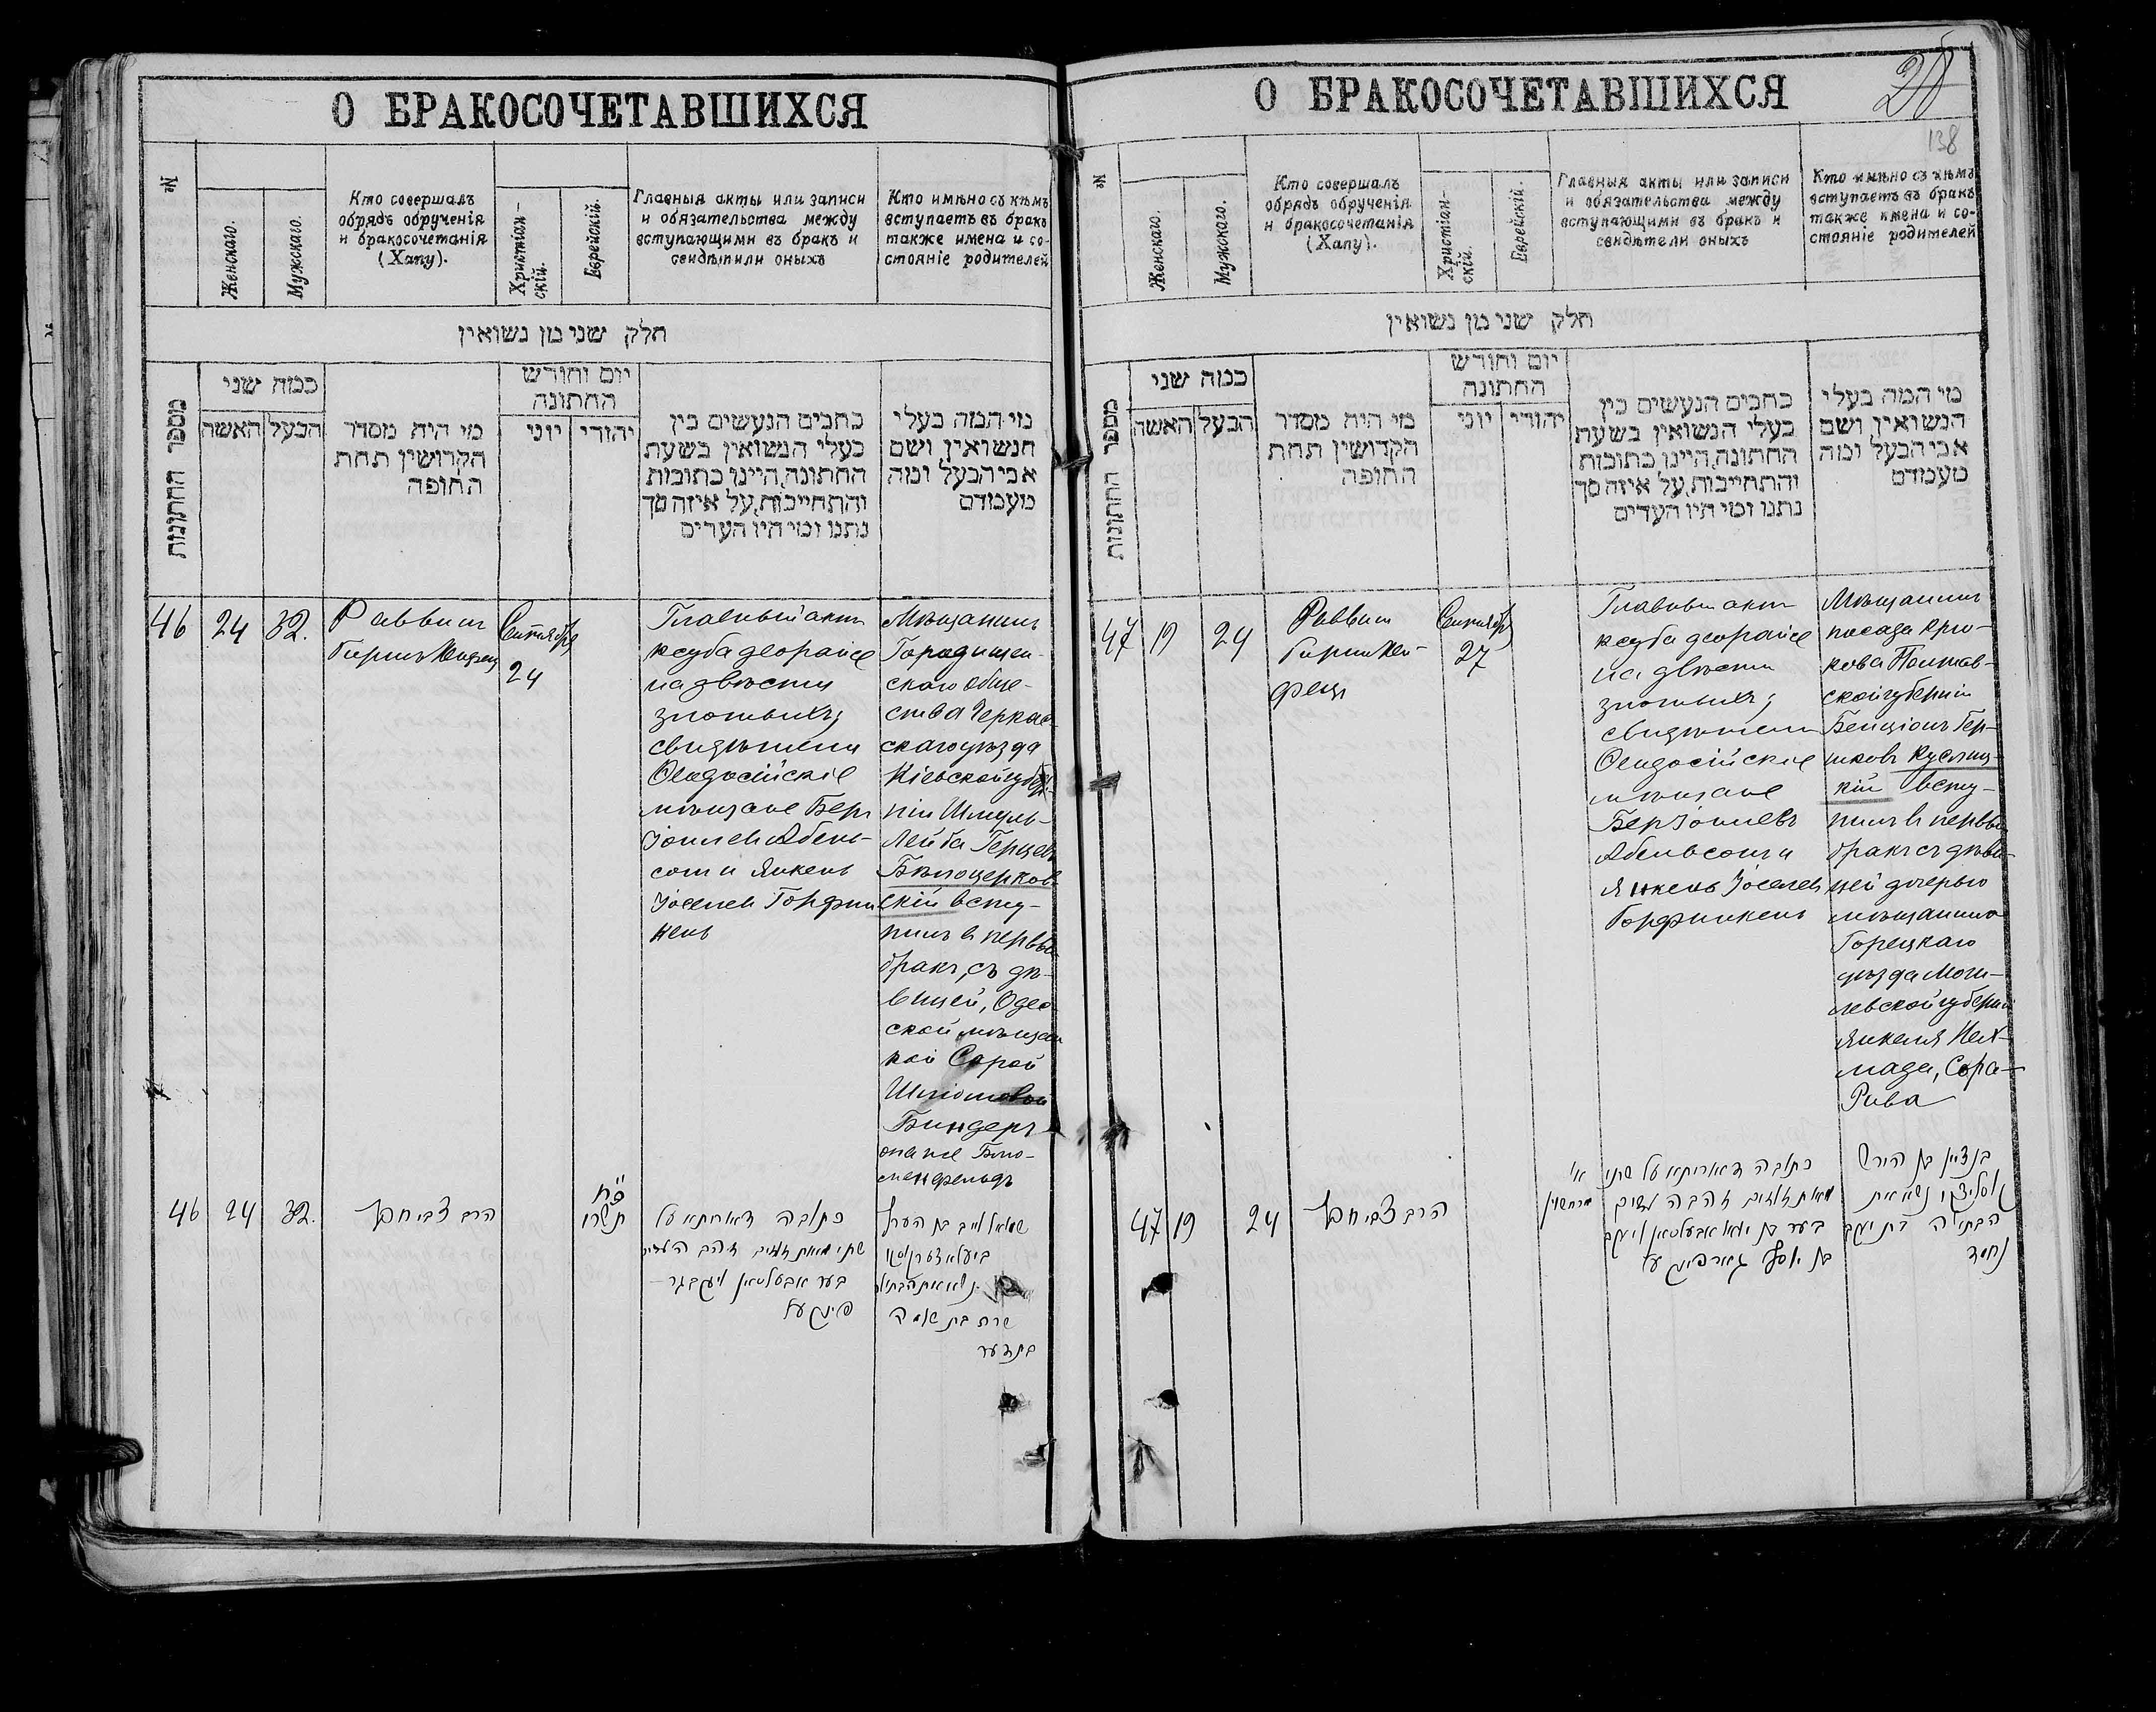 О БРАКОСОЧЕТАВШИХСЯ
№
Женскаго.
Мужскаго.
Кто совершалъ
обрядъ обрученія
и бракосочетанія
(Хапу).
Христіан-
скій.
Еврейскій.
Главныя акты или записи
и обязательства между
вступающими въ бракъ и
свидѣтили оныхъ
Кто имѣно съ кѣмъ
вступаетъ въ бракъ
также имена и со-
стояніе родителей
חלק שני מן נשואין
מספר החתונות
כמה שני
האשה
הבעל
מי היה מסדר
הקדושין תחת
החופה
יום וחודש
החתונה
יוני
יהודי
כתבים הנעשים בין
בעלי הנשואין בשעת
החתונה, היינו כתובות
והתחייבות, על איזה סך
נתנו ומי היו העדים
מי המה בעלי
הנשואין ושם
אבי הבעל ומה
מעמדם
46
24
32.
Раввинъ
Гиршъ
Сентября
24
Главный актъ
ксуба деорайсе
на двѣсти
злотыхъ;
свидѣтели
Ѳеодосійскіе
мѣщане Беръ
Іоилевъ Абель-
сонъ и Янкель
Іоселевъ Горфин
кель
Мѣщанинъ
Городищен-
скаго обще-
ства Черкас-
скаго уѣзда
Кіевской губер-
ніи Шмуль-
Лейба Герцевъ
Бѣлоцерков-
скій всту-
пилъ въ первый
бракъ, съ дѣ-
вицей, Одес-
ской мѣщан
кой Сарой
Шліомовой
Биндеръ
она же Блю-
менфельдъ
46
24
32.
הרב צבי חפץ
כ״ח
תשרי
כתובה דאורייתא על
שתי מאות זהובים
בער אבעלסאן
שמואל לייב בן הערץ
שרה בת שלמה
בינדער
О БРАКОСОЧЕТАВШИХСЯ
20
138
№
Женскаго.
Мужскаго.
Кто совершалъ
обрядъ обрученія
и бракосочетанія
(Хапу).
Христіан-
скій.
Еврейскій.
Главныя акты или записи
и обязательства между
вступающими въ бракъ и
свидѣтели оныхъ
Кто имѣно съ кѣмъ
вступаетъ въ бракъ
также имена и со-
стояніе родителей
חלק שני מן נשואין
מספר החתונות
כמה שני
האשה
הבעל
מי היה מסדר
הקדושין תחת
החופה
יום וחודש
החתונה
יוני
יהודי
כתבים הנעשים בין
בעלי הנשואין בשעת
החתונה, היינו כתובות
והתחייבות, על איזה סך
נתנו ומי היו העדים
מי המה בעלי
הנשואין ושם
אבי הבעל ומה
מעמדם
47
19
24
Раввинъ
Гиршъ Хей-
фецъ
Сентября
27
Главный актъ
ксуба деорайсе
на двѣсти
злотыхъ;
свидѣтели
Ѳеодосійскіе
мѣщане
Беръ Іоилевъ
Абельсонъ и
Янкель Іоселевъ
Горфинкель
Мѣщанинъ
посада Крю-
кова Полтав-
ской губерніи
Бенціонъ Гер-
шковъ
кій всту-
пилъ въ первый
бракъ съ дѣви-
цей дочерью
мѣщанина
Горецкаго
уѣзда Моги-
левской губерніи
Янкеля Нех-
мада, Сора-
Рива
47
19
24
הרב צבי חפץ
א׳
מרחשון
כתובה דאורייתא על שתי
מאות זהובים
בער בן יואל אבעלסאן ויעקב
בן יוסף גארפינקעל
בן ציון בן הירש
נשא את
הבתולה בת יעקב
נחמד